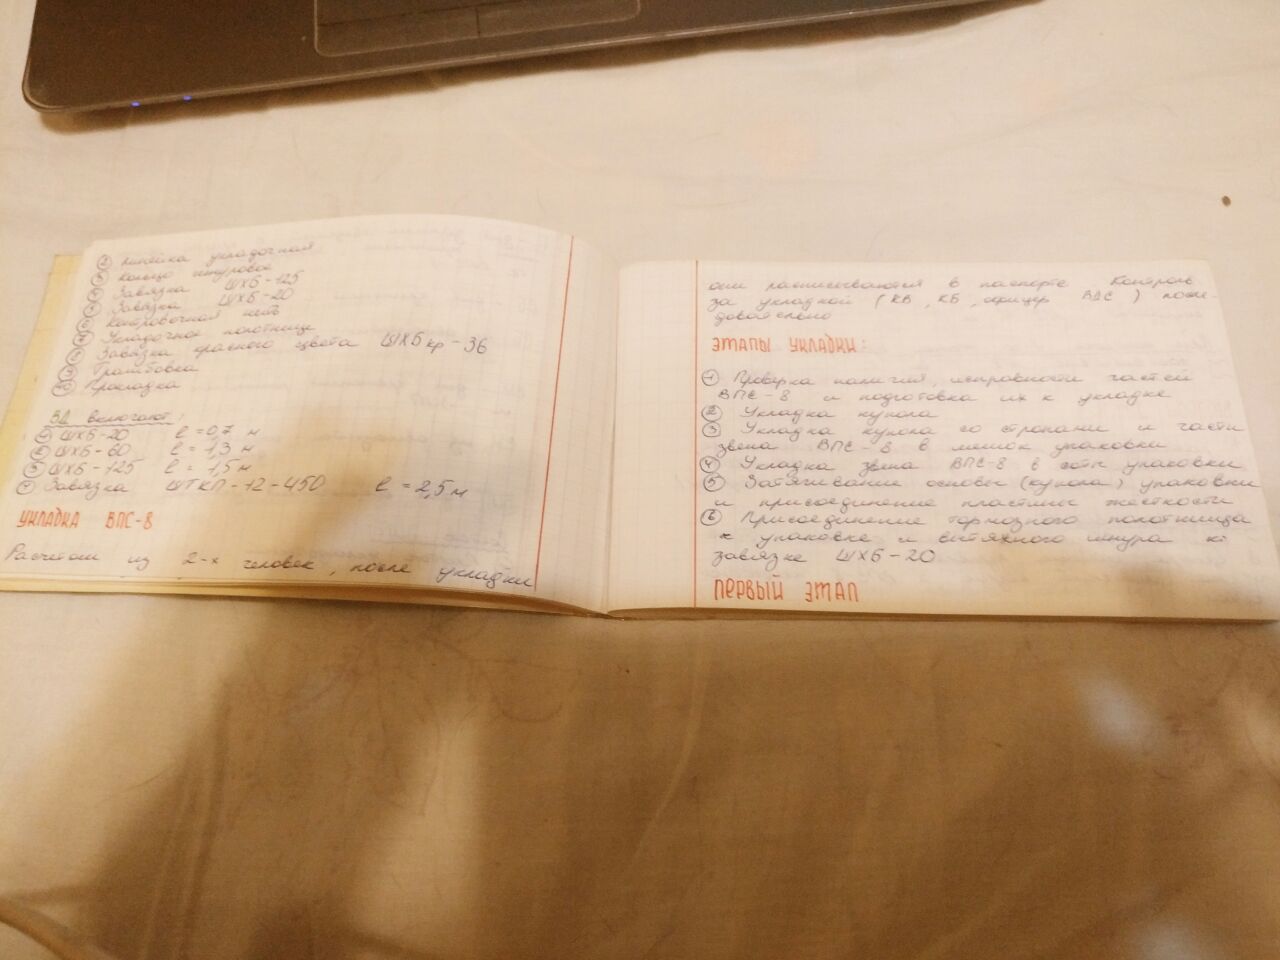 ② Линейка укладочная
③ Кольцо шнуровое
④ Завязка ШХБ-125
⑤ Завязка ШХБ-20
⑥ Контровочная нить
⑦ Укладочное полотнище
⑧ Завязка красного цвета ШХБкр-36
⑨ Трамбовка
⑩ Прокладка
ЗД включают:
① ШХБ-20 l=0,7 м
② ШХБ-60 l=1,3 м
③ ШХБ-125 l=1,5 м
④ Завязка ШТКП-12-450 l=2,5м
УКЛАДКА ВПС-8
Расчётом из 2-х человек, после укладки
они расписываются в паспорте Контроль
за укладкой (КВ, КБ, офицер ВДС) после-
довательно
ЭТАПЫ УКЛАДКИ:
① Проверка наличия, исправности частей
ВПС-8 и подготовка их к укладке
② Укладка купола
③ Укладка купола со стропами и части
звена ВПС-8 в мешок упаковки
④ Укладка звена ВПС-8 в соты упаковки
⑤ Затягивание основы (купола) упаковки
и присоединение пластины жёсткости
⑥ Присоединение тормозного полотнища
к упаковке и вытяжного шнура к
завязке ШХБ-20
ПЕРВЫЙ ЭТАП